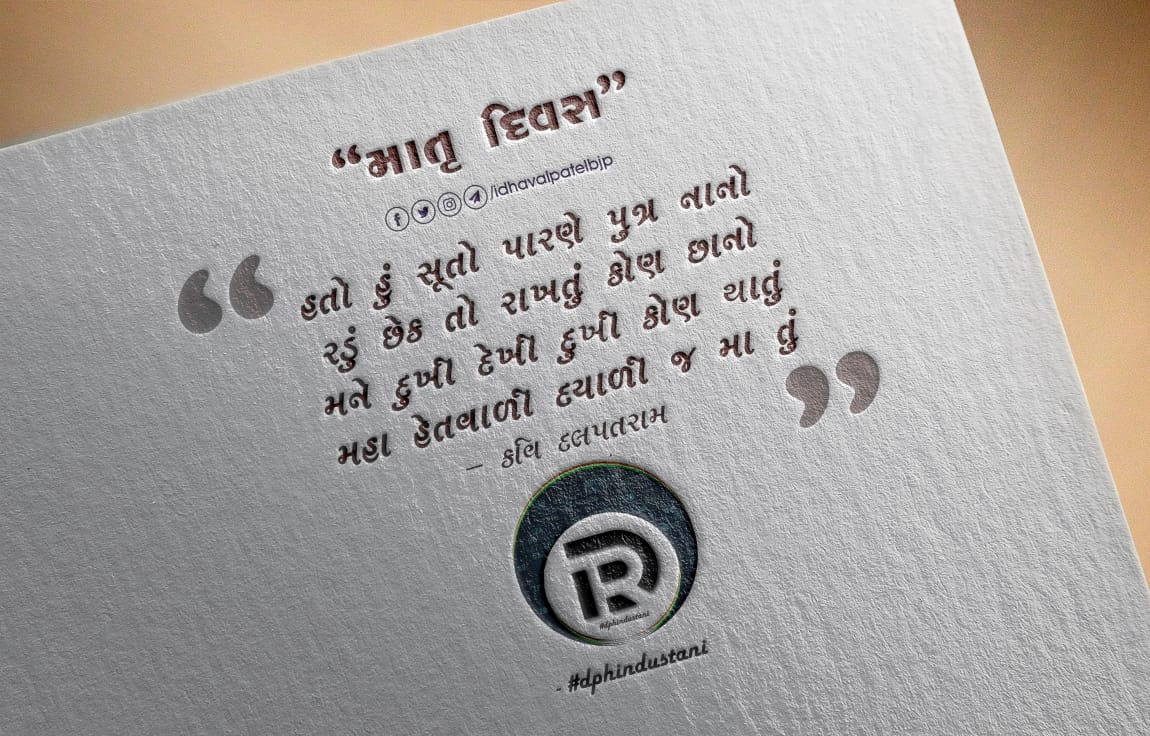 “માતૃ દિવસ”
/idhavalpatelbjp
હતો હું સૂતો પારણે પુત્ર નાનો
રડું છેક તો રાખતું કોણ છાનો
મને દુખી દેખી દુખી કોણ થાતું
મહા હેતવાળી દયાળી જ મા તું
– કવિ દલપતરામ
#dphindustani
- #dphindustani